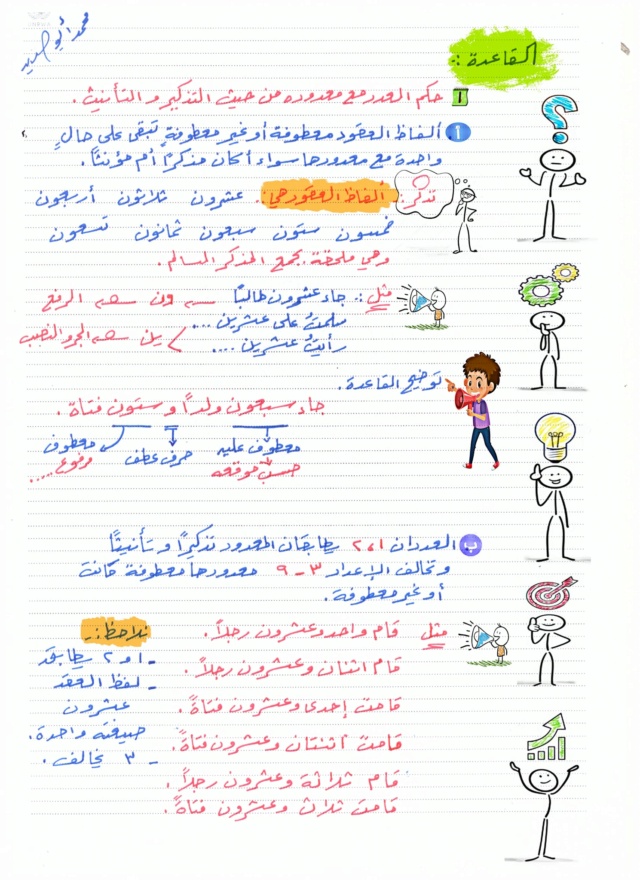 محمد أبو
القاعدة :
1 حكم العدد مع معدوده من حيث التذكير و التأنيث .
أ ألفاظ العقود معطوفة أو غير معطوفة تبقى على حالٍ
واحدة مع معدودها سواء أكان مذكراً أم مؤنثاً .
تذكر : ألفاظ العقود هي : عشرون ثلاثون أربعون
خمسون ستون سبعون ثمانون تسعون
وهي ملحقة بجمع المذكر السالم .
مثل : جاء عشرون طالباً ون الرفع
سلمتُ على عشرين ...
رأيتُ عشرين .... ين الجر والنصب
توضيح القاعدة .
جاء سبعون ولداً و ستون فتاة .
معطوف عليه حرف عطف معطوف
حسب موقعه مرفوع .....
ب العددان ١، ٢ يطابقان المعدود تذكيراً و تأنيثاً
وتخالف الإعداد ٣ - ٩ معدودها معطوفة كانت
أو غير معطوفة .
مثل قام واحد وعشرون رجلاً .
قام اثنان وعشرون رجلاً .
قامت إحدى وعشرون فتاةً .
قامت اثنتان وعشرون فتاةً .
قام ثلاثة وعشرون رجلاً .
قامت ثلاث وعشرون فتاةً .
نلاحظ :-
- ١ و ٢ يطابق
- لفظ العقد
عشرون
صيغته واحدة .
- ٣ يخالف .